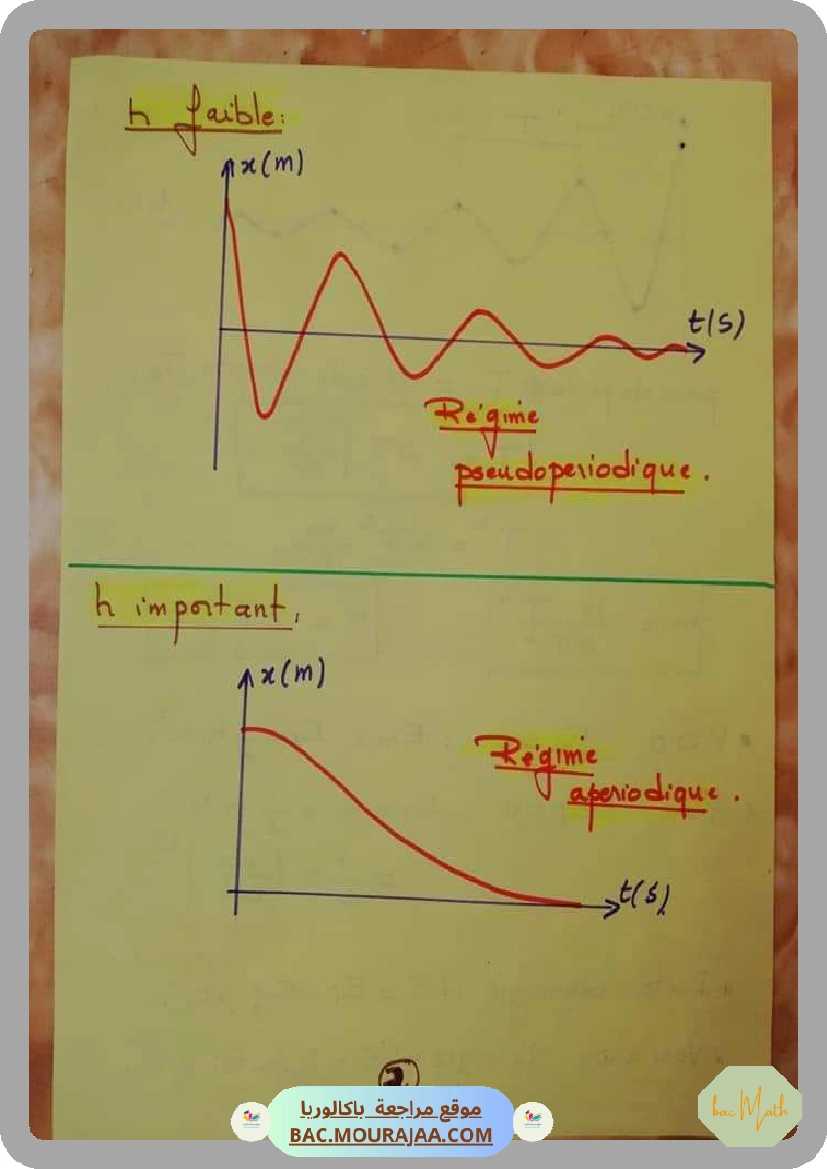 h faible:
x(m)
t(s)
Régime
pseudoperiodique.
h important,
x(m)
Régime
aperiodique.
t(s)
موقع مراجعة باكالوريا
BAC.MOURAJAA.COM
bac Math